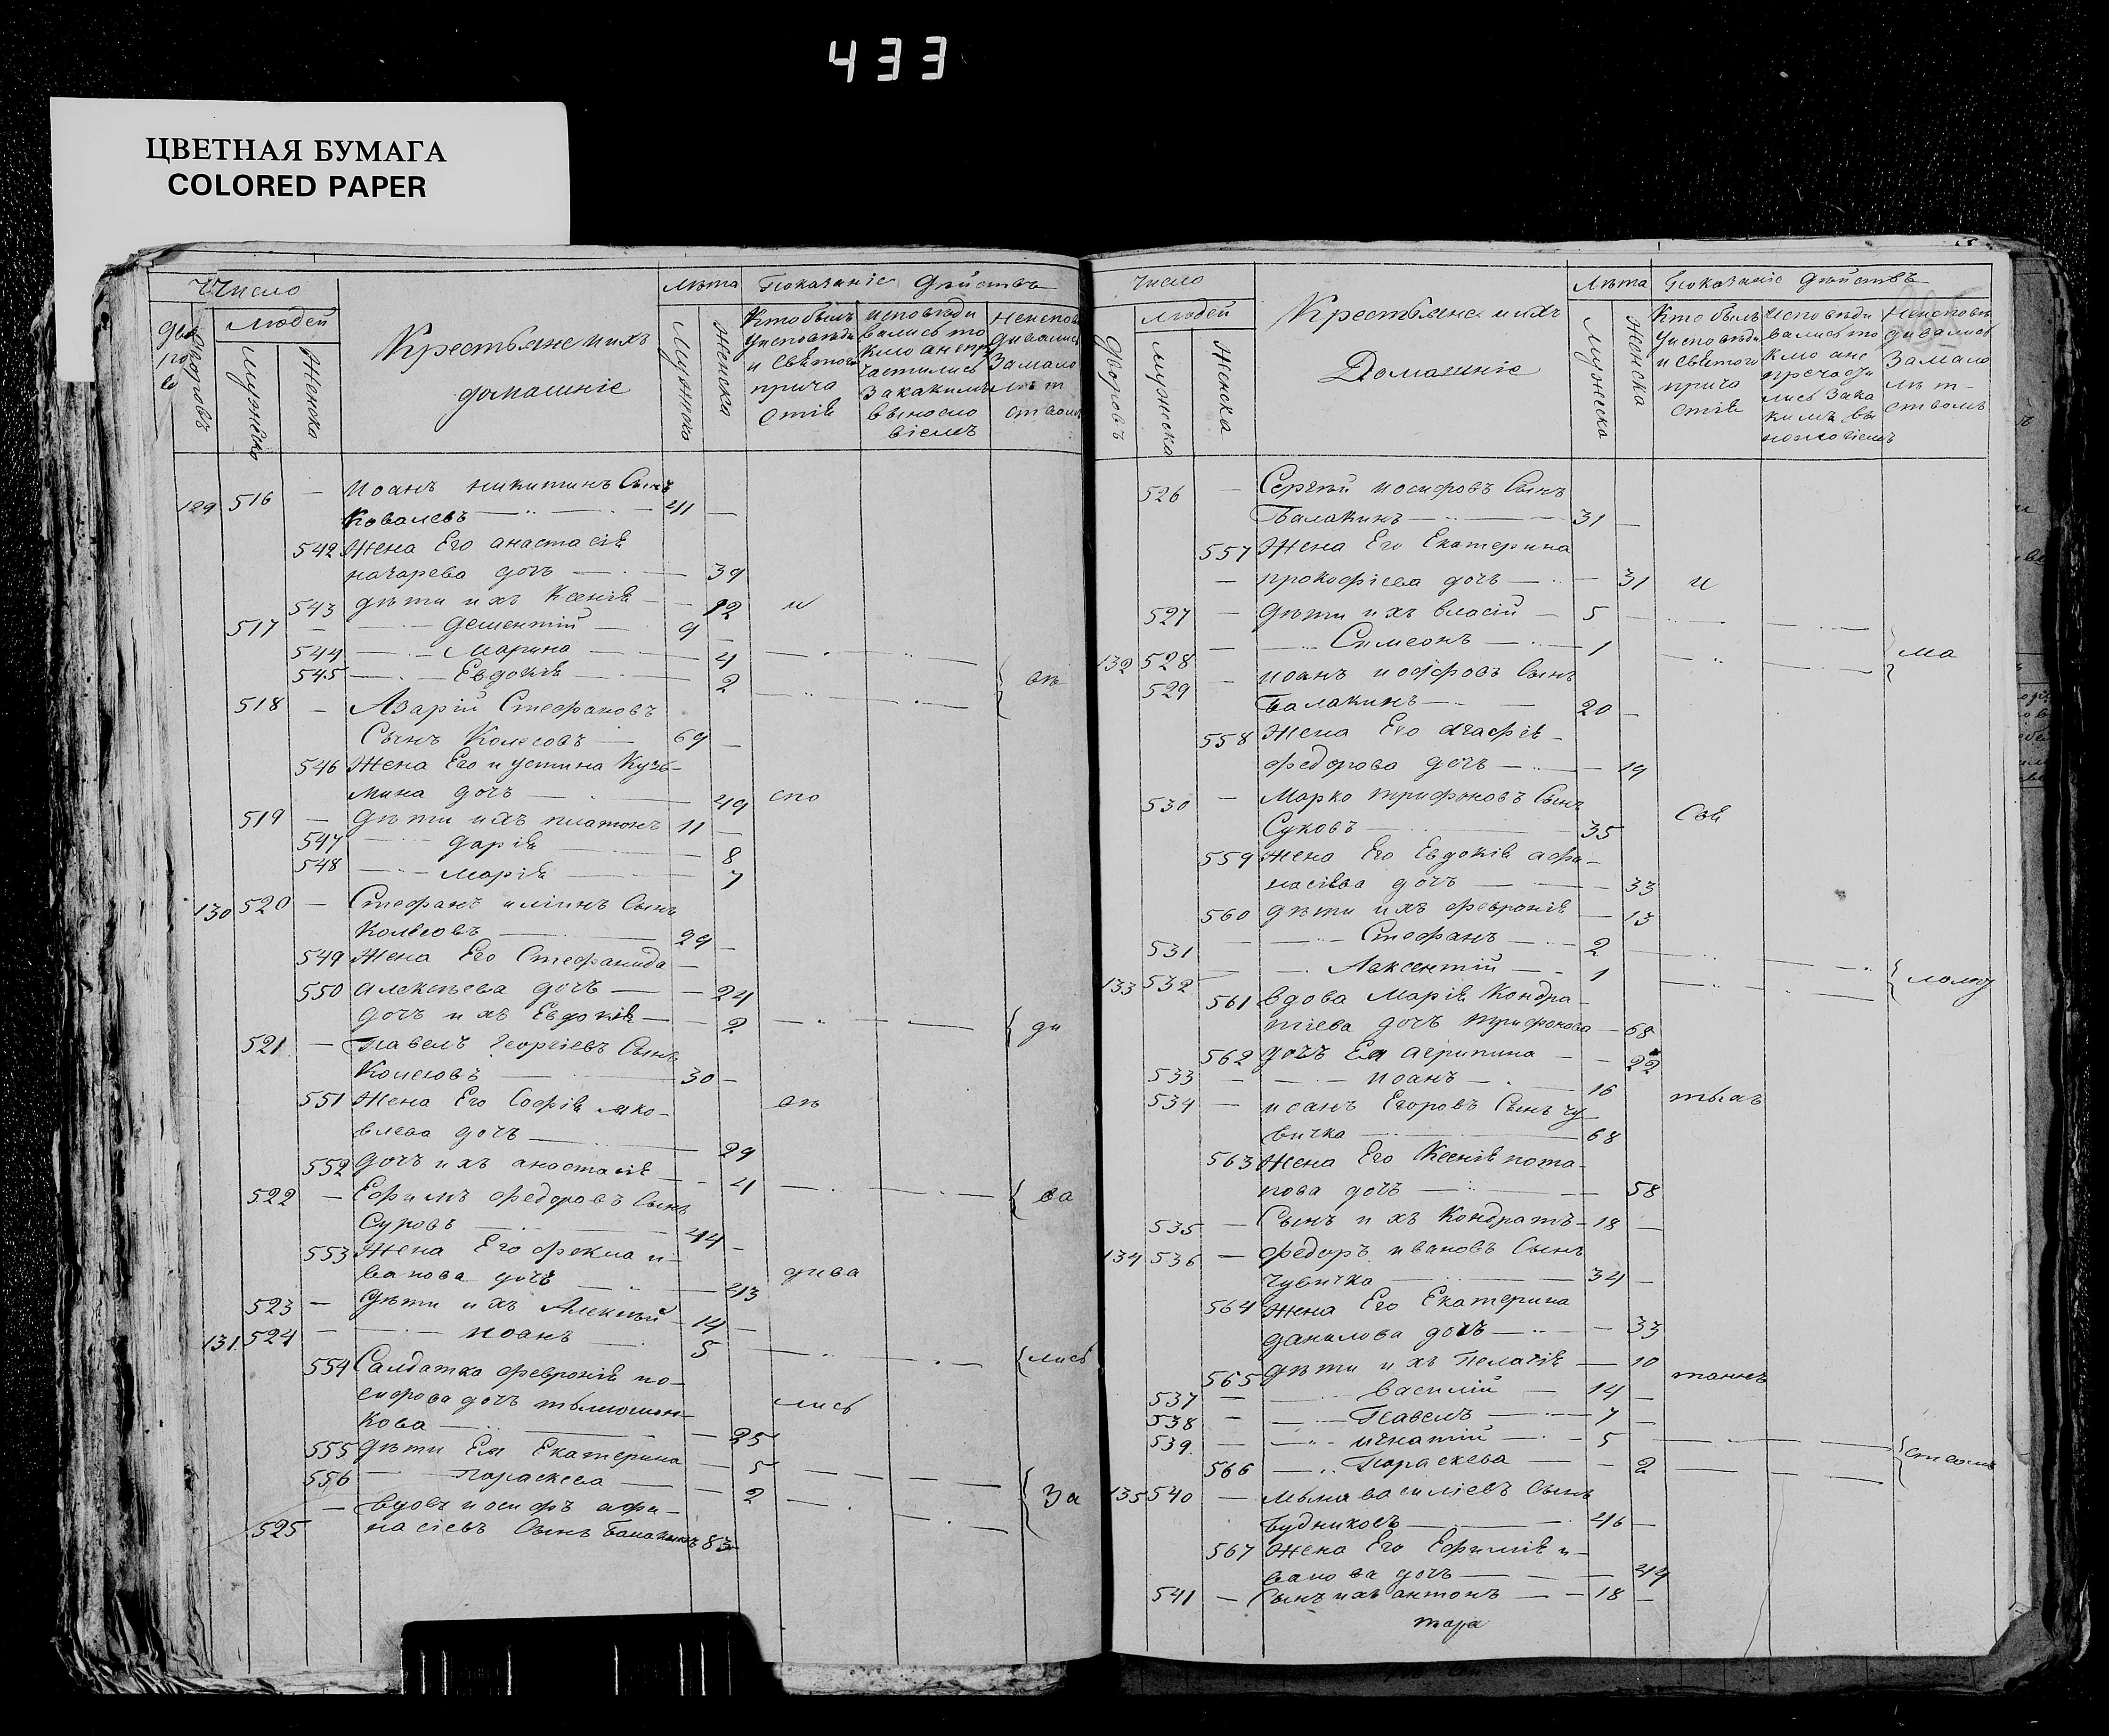 433
ЦВЕТНАЯ БУМАГА
COLORED PAPER
Число
Людей
Дворовъ
Мужеска
Женска
Крестьяне и ихъ
домашніе
Лѣта
Мужеска
Женска
Показаніе Дѣйствъ
Кто былъ
у исповѣди
и святого
прича
стія
исповѣди
вались то
кмо а не при
частились
за какимъ
винословіемъ
Неиспов
дивались
за мало
лѣт
ствомъ
129 516 — Иоанъ никитинъ Сынъ
Ковалевъ — 41 —
542 Жена Его анастасія
назарева дочь — 39
543 дѣти ихъ Ксенія — 12 и
517 — дементій — 9 —
544 — Марина — 4
545 — Евдокія — 2
518 — Азарій Стефановъ
Сынъ Колесовъ — 69 —
546 Жена Его иустина Кузь-
мина дочь — 49 спо
519 — дѣти ихъ платонъ 11 —
547 — дарія — 8
548 — марія — 7
130 520 — Стефанъ илiинъ Сынъ
Колесовъ — 29 —
549 Жена Его Стефанида
550 алексѣева дочь — 24
дочь ихъ Евдокія — 2 ди
521 — Павелъ Георгіевъ Сынъ
Колесовъ — 30 —
551 Жена Его Софія яко-
влева дочь — 29 вѣ
552 дочь ихъ анастасія — 4 ва
522 — Ефимъ федоровъ Сынъ
Суровъ — 44 —
553 Жена Его фекла и-
ванова дочь — 43 дива
523 — дѣти ихъ Алексѣй — 14 —
131 524 — иоанъ — 5 лись
554 Салдатка февронія ио-
сифова дочь
кова — 25 лись
555 дѣти Ея Екатерина — 5
556 — Параскева — 2 За
525 — вдовъ иосифъ афа-
насіевъ Сынъ Балакинъ 83
Число
Людей
Дворовъ
мужеска
Женска
Крестьяне и ихъ
Домашніе
Лѣта
Мужеска
Женска
Показаніе дѣйствъ
Кто былъ
у исповѣди
и святого
прича
стія
исповѣди
вались то
кмо а не
причасти
лись за ка
кимъ ви
нословіемъ
Неисповѣ
дивались
За мало
лѣт-
ствомъ
526 — Сергѣй иосифовъ Сынъ
Балакинъ — 31 —
557 Жена Его Екатерина
— прокофіева дочь — 31 и
527 — дѣти ихъ власій — 5
132 528 — Симеонъ — 1 ма
529 — иоанъ иосифовъ Сынъ
Балакинъ — 20 —
558 Жена Его агафія
федорова дочь — 19
530 — Марко трифоновъ Сынъ
Суховъ — 35 свя
559 Жена Его Евдокія афа-
насіева дочь — 33
560 дѣти ихъ февронія — 13
531 — Стефанъ — 2
133 532 — Авксентій — 1 лолѣ
561 вдова Марія Кондра-
тіева дочь трифонова — 68
562 дочь Ея агрипина — 22
533 — иоанъ — 16
534 — иоанъ Егоровъ Сынъ чу-
вичка — 68
563 Жена Его Ксенія пота-
пова дочь — 58
535 — Сынъ ихъ Кондратъ — 18 —
134 536 — федоръ ивановъ Сынъ
чувичка — 34 —
564 Жена Его Екатерина
данилова дочь — 33
565 дѣти ихъ Пелагія — 10 таинъ
537 — василій — 14 —
538 — Павелъ — 7 —
539 — игнатій — 5
566 — Параскева — 2 ствомъ
135 540 — василіевъ Сынъ
Будниковъ — 46 —
567 Жена Его Ефимія и-
ванова дочь — 44
541 — Сынъ ихъ антонъ — 18 —